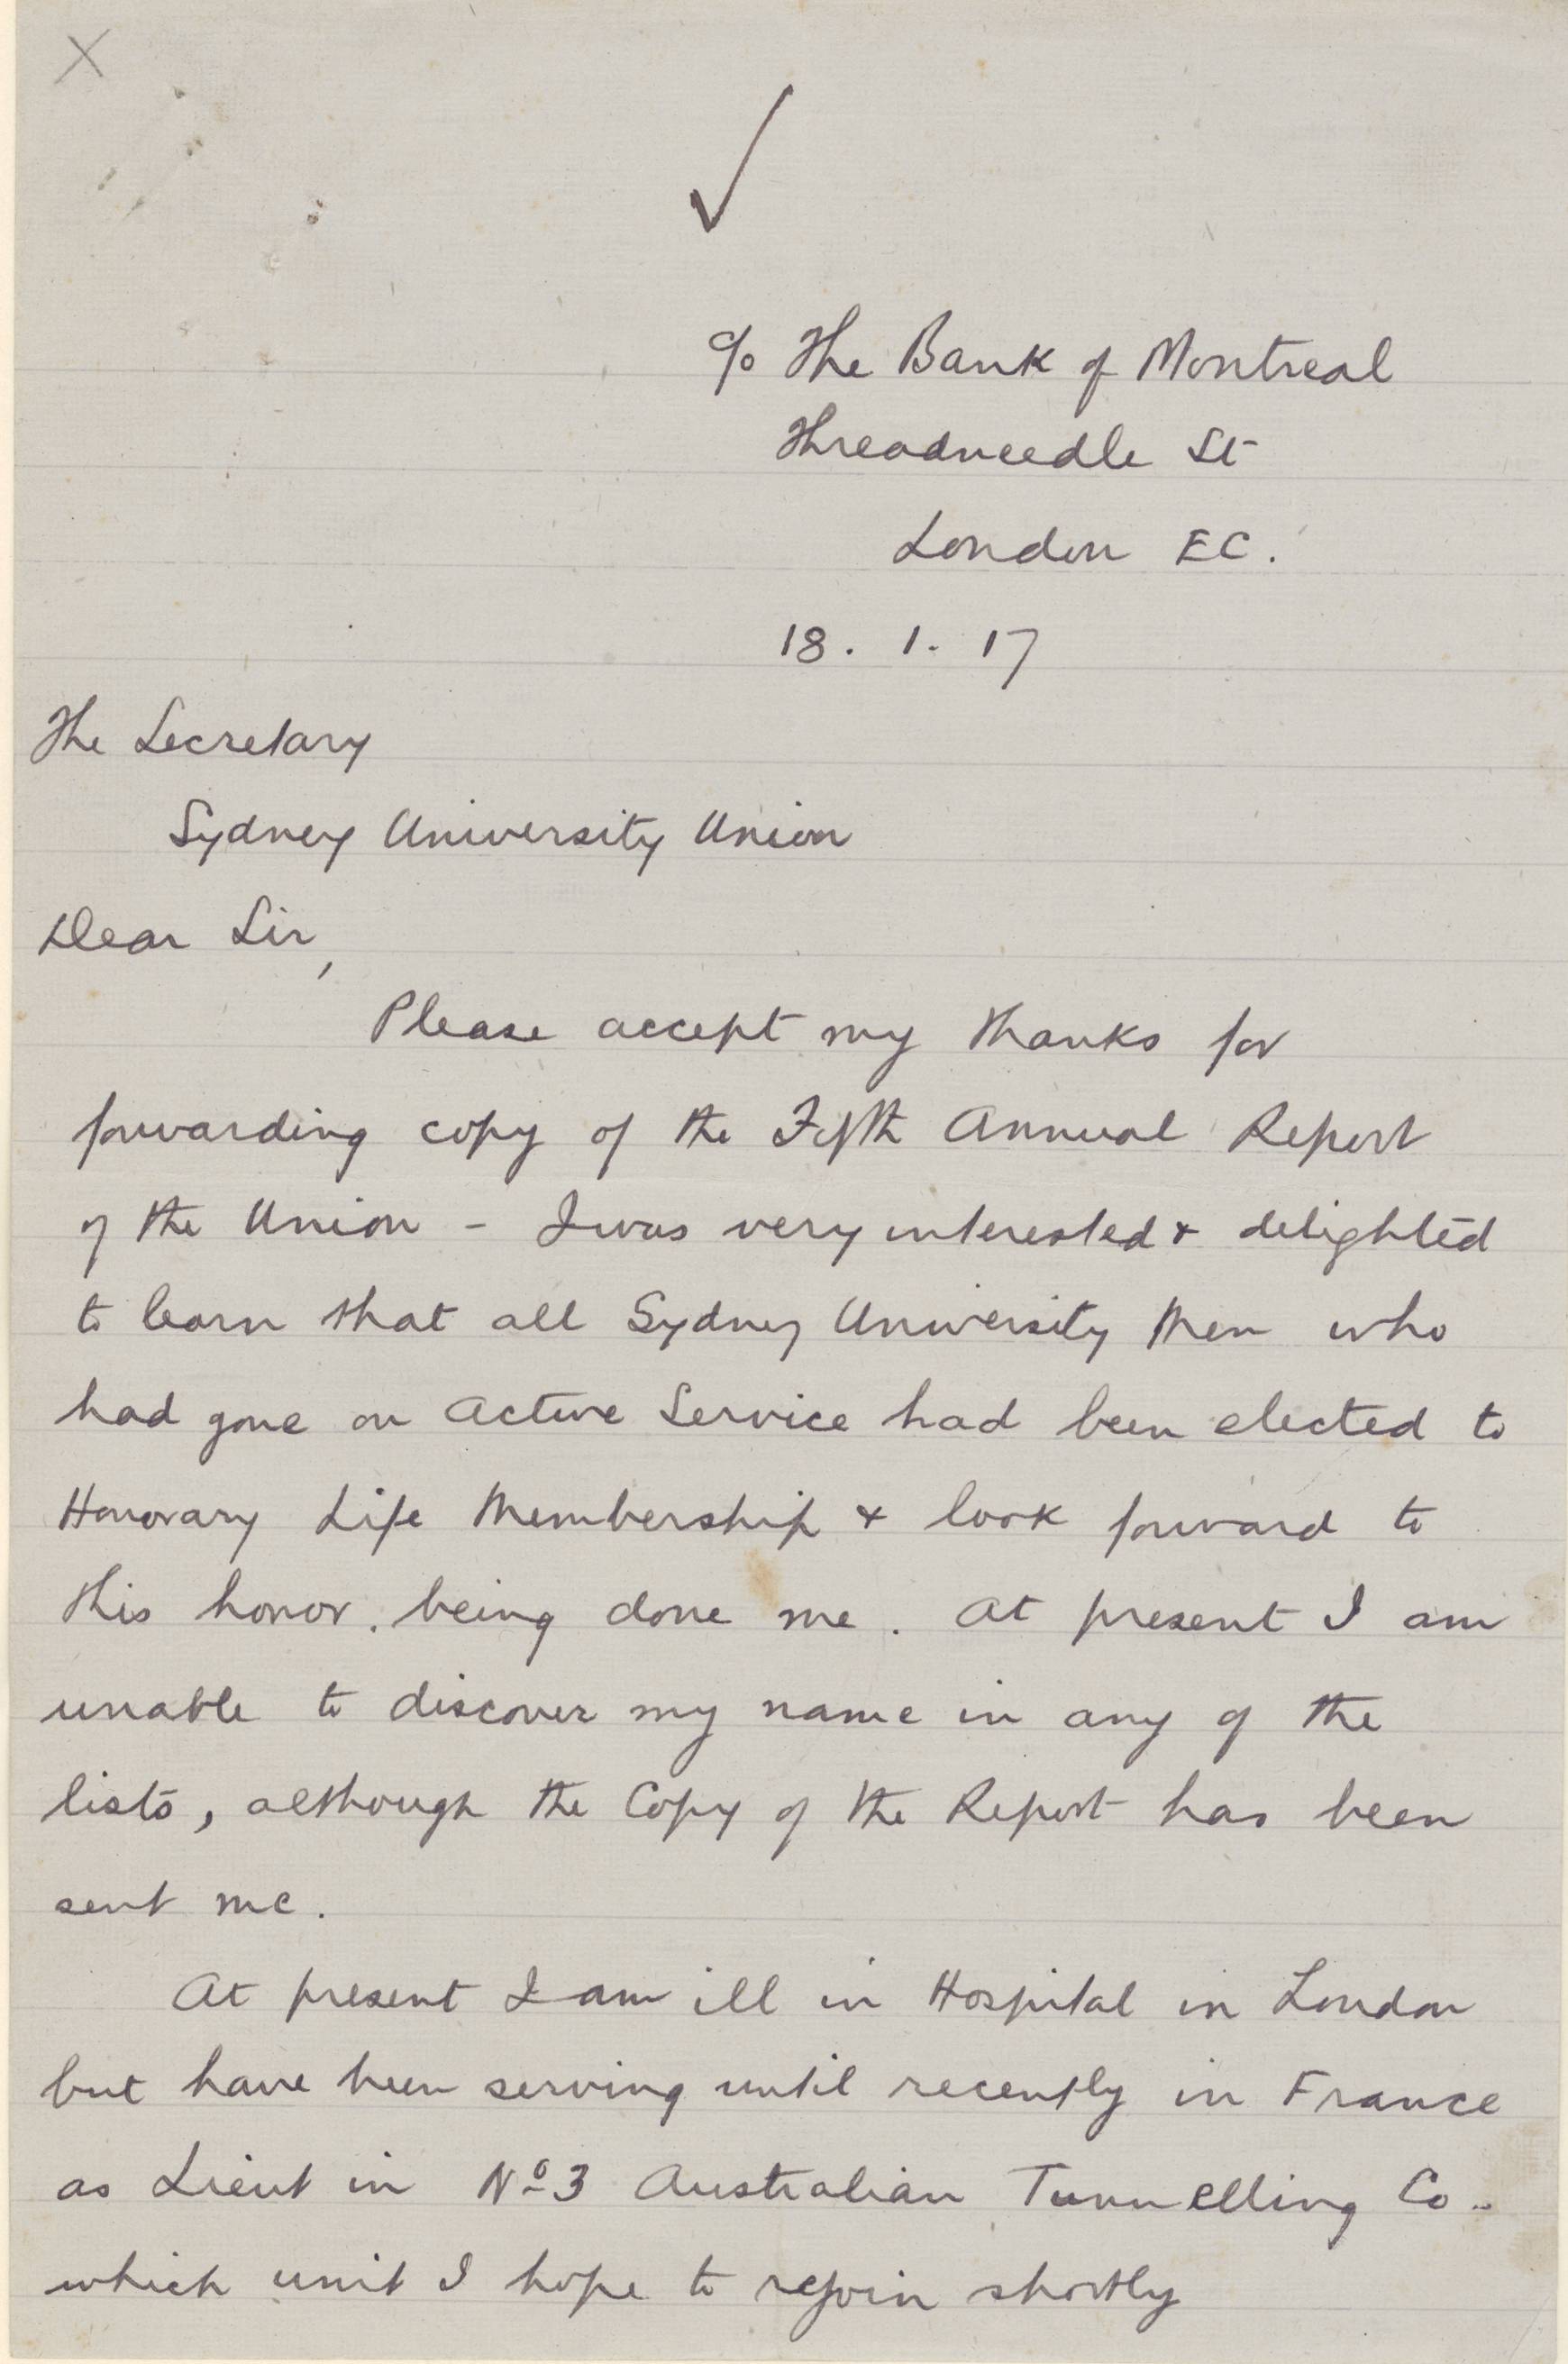 X
✓
c/o The Bank of Montreal
Threadneedle St
London EC.
18. 1. 17
The Secretary
Sydney University Union
Dear Sir,
Please accept my thanks for
forwarding copy of the Fifth Annual Report
of the Union - I was very interested & delighted
to learn that all Sydney University Men who
had gone on Active Service had been elected to
Honorary Life Membership & look forward to
this honor being done me. At present I am
unable to discover my name in any of the
lists, although the Copy of the Report has been
sent me.
At present I am ill in Hospital in London
but have been serving until recently in France
as Lieut in No 3 Australian Tunnelling Co..
which unit I hope to rejoin shortly